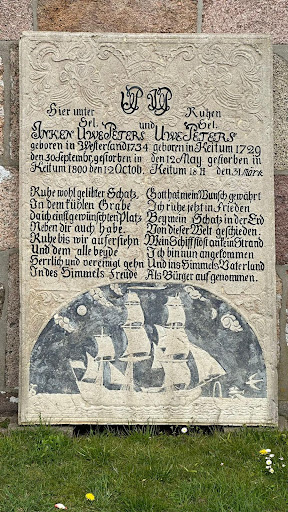 Hier unter Ruhen
Sel. und Sel.
INKEN UWE PETERS UWE PETERS
geboren in Westerland 1734 geboren in Keitum 1729
den 30 Septembr, gestorben in den 12 May gestorben in
Keitum 1800 den 12 Octobr. Keitum den 31 Martz
Ruhe wohl geliebter Schatz,
In dem kühlen Grabe
Da ich einst gewünschten Platz
Neben dir auch habe.
Ruhe bis wir auferstehn
Und dem alle beyde
Herrlich und vereinigt gehn
In des Himmels Freude
Gott hat mein Wunsch gewährt
Ich ruhe jetzt in Frieden
Bey mein Schatz in der Erd
Von dieser Welt geschieden.
Mein Schiff stöst an kein Strand
Ich bin nun angekommen
Und ins Himmels Vaterland
Als Bürger aufgenommen.